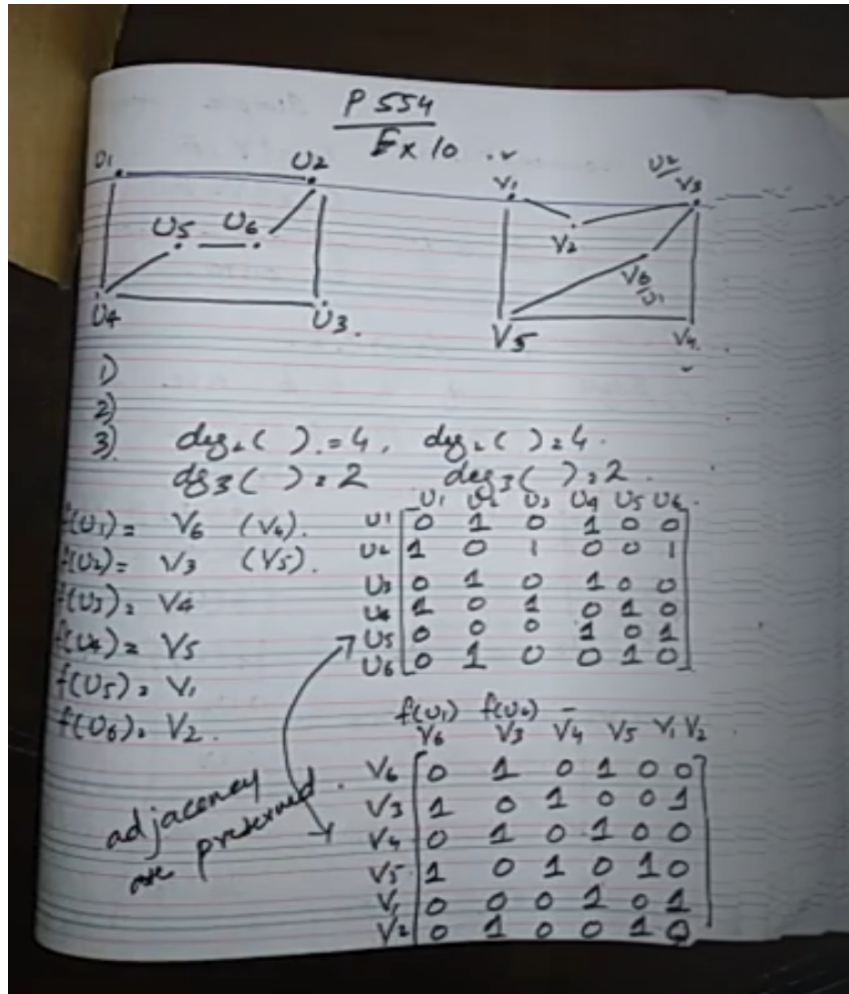 P 554
Ex 10
U1 U2
U5 U6
U4 U3.
V1 U2/V3
V2
V6/U1
V5 V4.
1)
2)
3) deg2( ) = 4, deg2( ) = 4.
deg3( ) = 2 deg3( ) = 2.
f(U1) = V6 (V4).
f(U2) = V3 (V5).
f(U3) = V4
f(U4) = V5
f(U5) = V1
f(U6) = V2.
U1 U2 U3 U4 U5 U6
U1 0 1 0 1 0 0
U2 1 0 1 0 0 1
U3 0 1 0 1 0 0
U4 1 0 1 0 1 0
U5 0 0 0 1 0 1
U6 0 1 0 0 1 0
adjacency
are preserved.
f(U1) f(U2) –
V6 V3 V4 V5 V1 V2
V6 0 1 0 1 0 0
V3 1 0 1 0 0 1
V4 0 1 0 1 0 0
V5 1 0 1 0 1 0
V1 0 0 0 1 0 1
V2 0 1 0 0 1 0